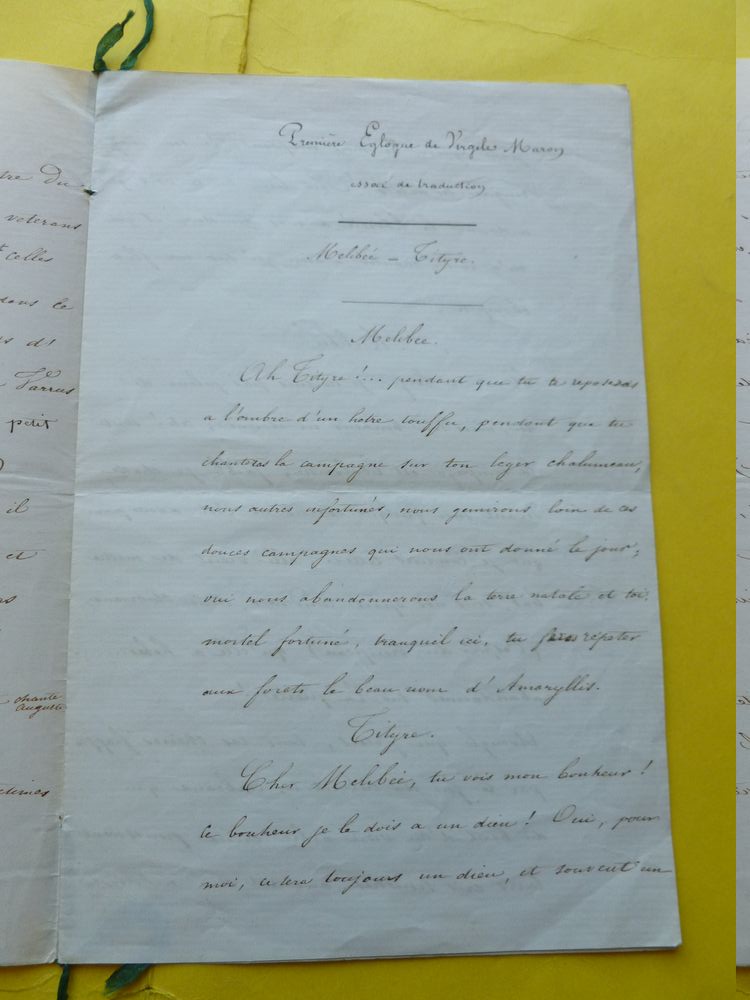 tre Du
veterans
t celles
dans le
s d'
Varrus
petit
il
et
as
chante
Auguste
ctimes
Première Eglogue de Virgile Maron
essai de traduction
Melibée - Tityre.
Melibee.
Ah Tityre !... pendant que tu te reposeras
a l'ombre d'un hetre touffu, pendant que tu
chanteras la campagne sur ton leger chalumeau,
nous autres infortunés, nous gemirons loin de ces
douces campagnes qui nous ont donné le jour,
oui nous abandonnerons la terre natale et toi,
mortel fortuné, tranquil ici, tu feras répeter
aux forets le beau nom d'Amaryllis.
Tityre.
Cher Melibée, tu vois mon bonheur !
ce bonheur je le dois a un dieu ! Oui, pour
moi, ce sera toujours un dieu, et souvent un